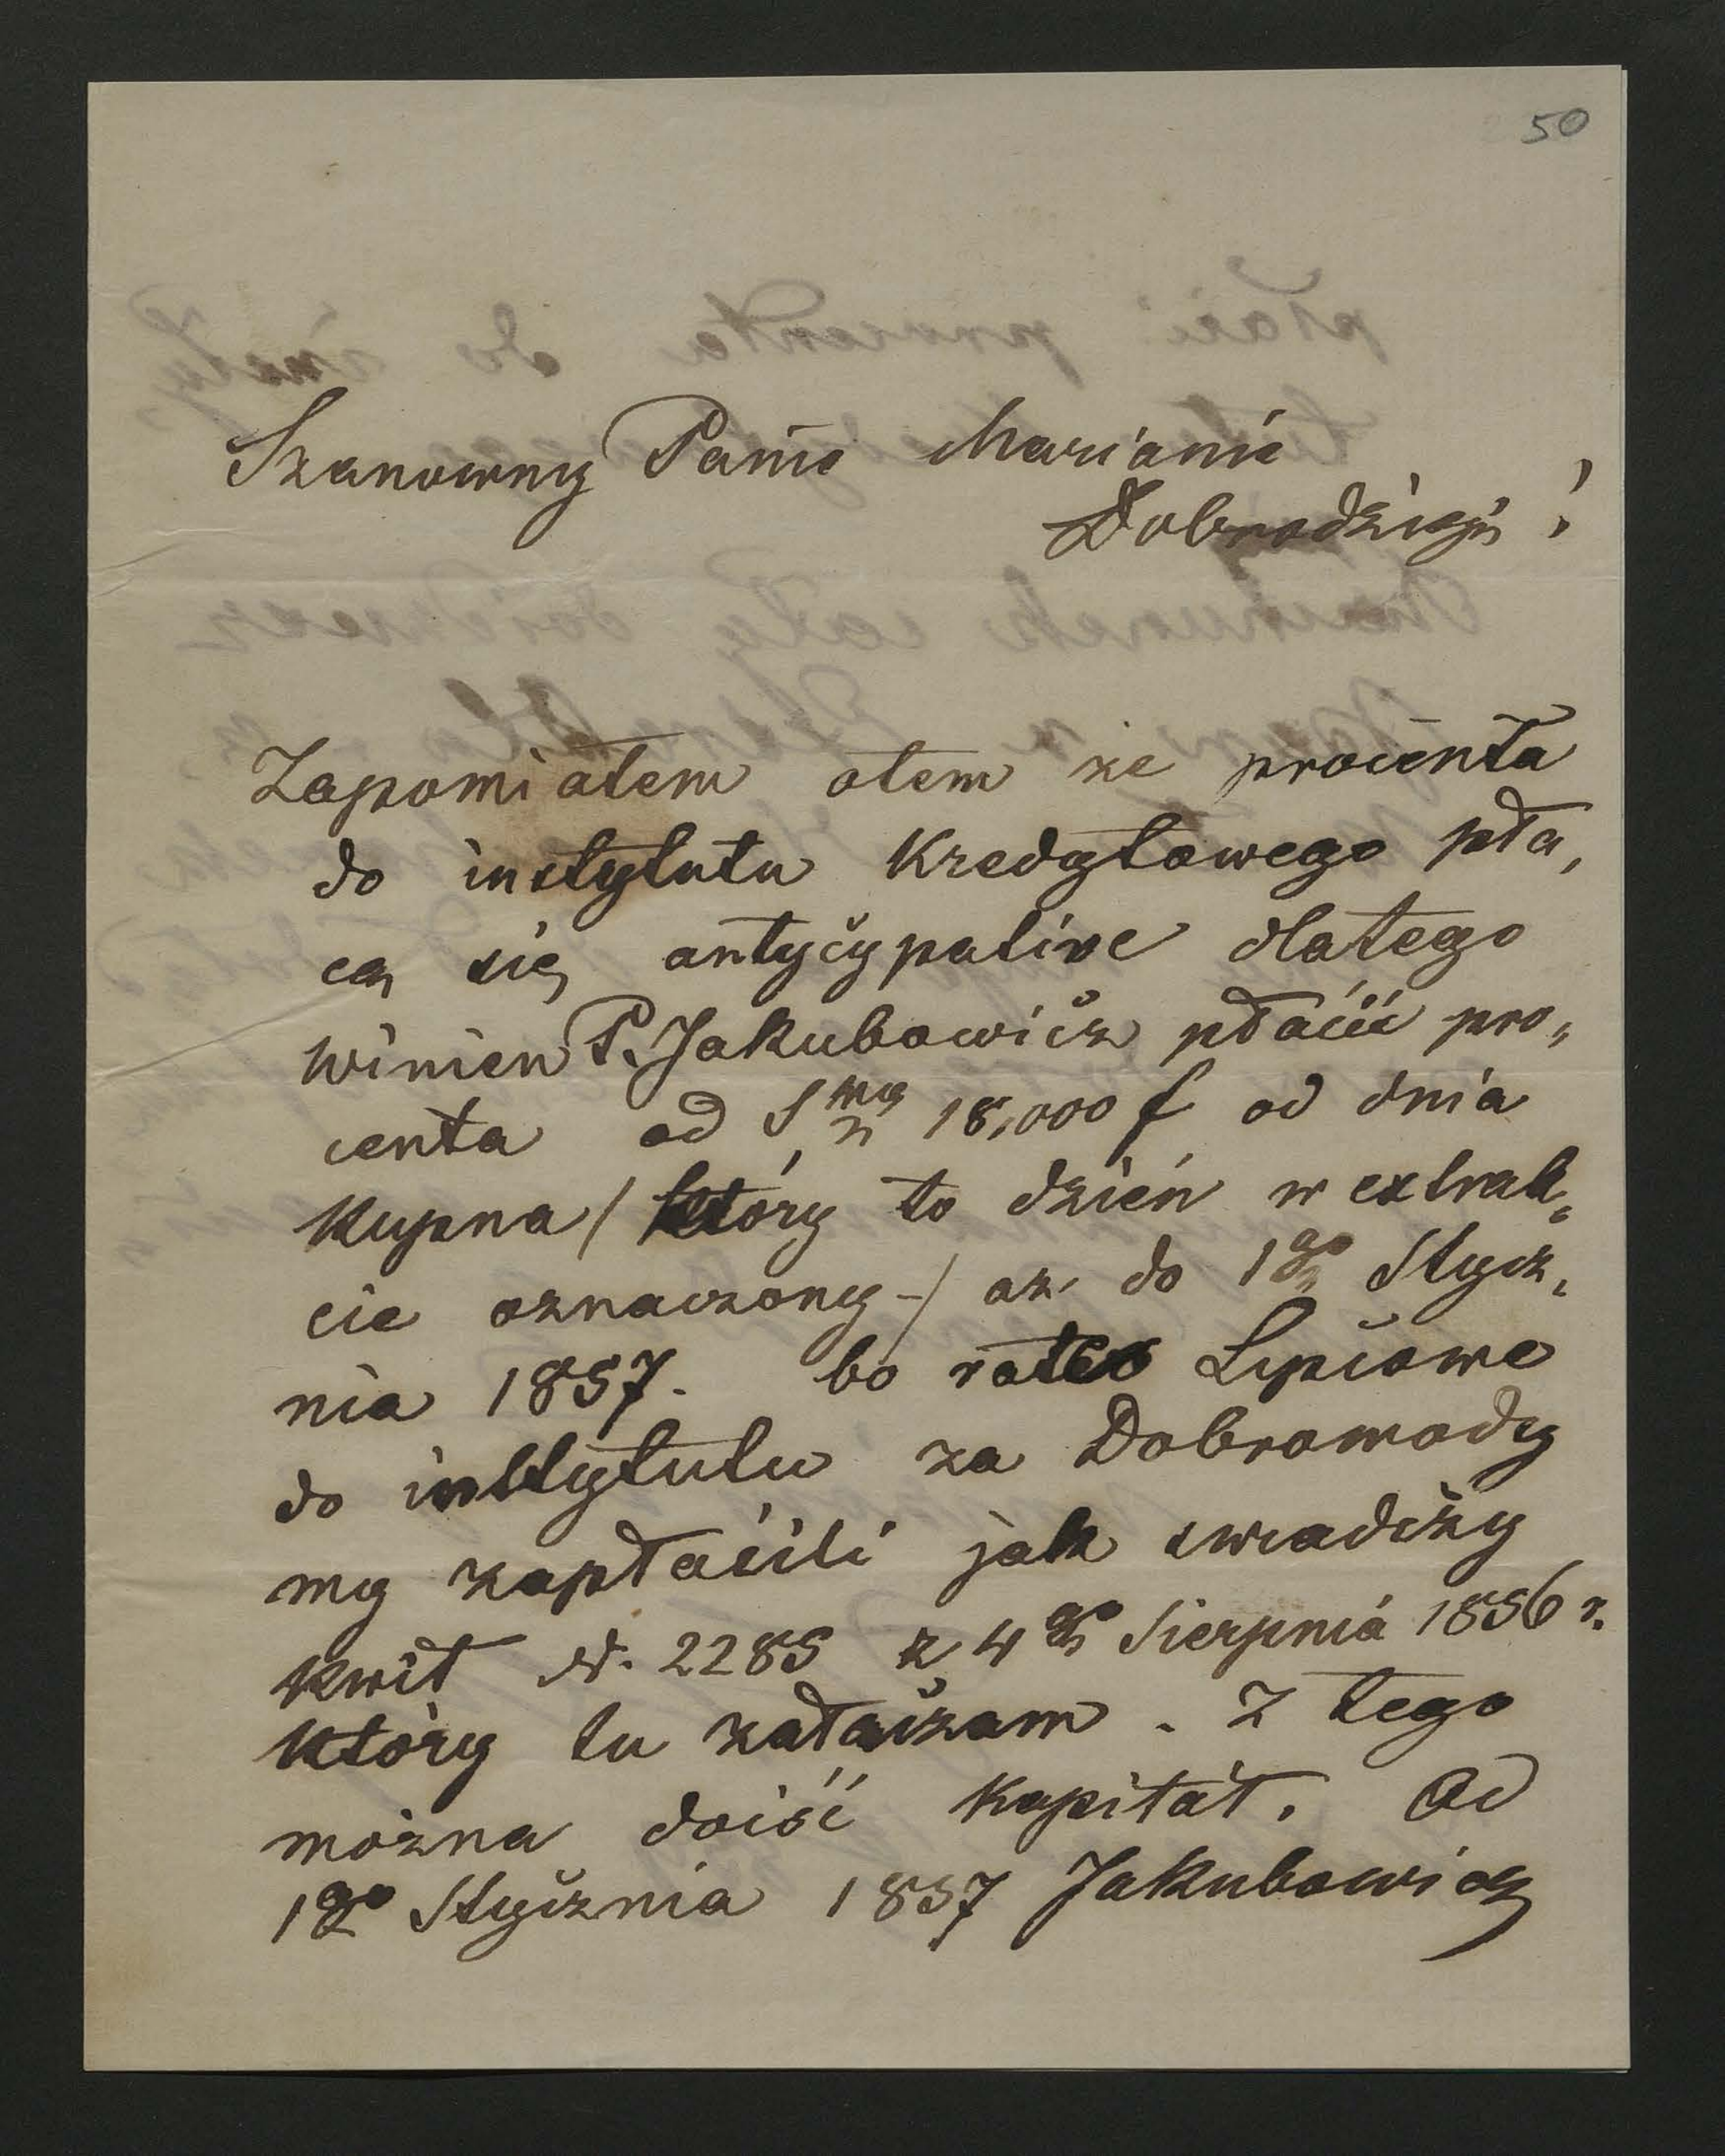 50
Szanowny Panie Marianie
Dobrodzieju!
Zapomiałem otem że procenta
do instytutu Kredytowego pła„
cą się antycypative dlatego
winien P. Jakubowicz płacić pro„
centa od Smy 18,000 f od dnia
Kupna / który to dzień w extrak„
cie oznaczony – / aż do 1go Stycz„
nia 1857. bo rate Lipcowe
do instytutu za Dobrowody
my zapłacili jak swiadczy
Kwit N. 2285 z 4go Sierpnia 1856 r.
który tu załączam. Z tego
można dojść Kapitał. Od
1go Stycznia 1857 Jakubowicz